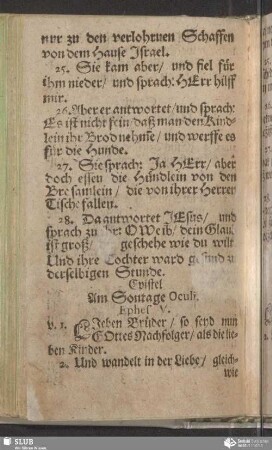 nur zu den verlohrnen Schaffen
von dem Hause Israel.
25. Sie kam aber/ und fiel für
ihm nieder/ und sprach: HErr hilff
mir.
26. Aber er antwortet/ und sprach:
Es ist nicht fein/ daß man den Kind-
lein ihr Brod nehme/ und werffe es
für die Hunde.
27. Sie sprach: Ja HErr/ aber
doch essen die Hündlein von den
Brosamlein/ die von ihrer Herren
Tische fallen.
28. Da antwortet JEsus/ und
sprach zu ihr: O Weib/ dein Glau
ist groß/ geschehe wie du wilt
Und ihre Tochter ward gesund zu
derselbigen Stunde.
Epistel
Am Sontage Oculi.
Ephes. V.
v. 1. Lieben Brüder/ so seyd nun
GOttes Nachfolger/ als die lie-
ben Kinder.
2. Und wandelt in der Liebe/ gleich-
wie
SLUB
Wir führen Wissen.